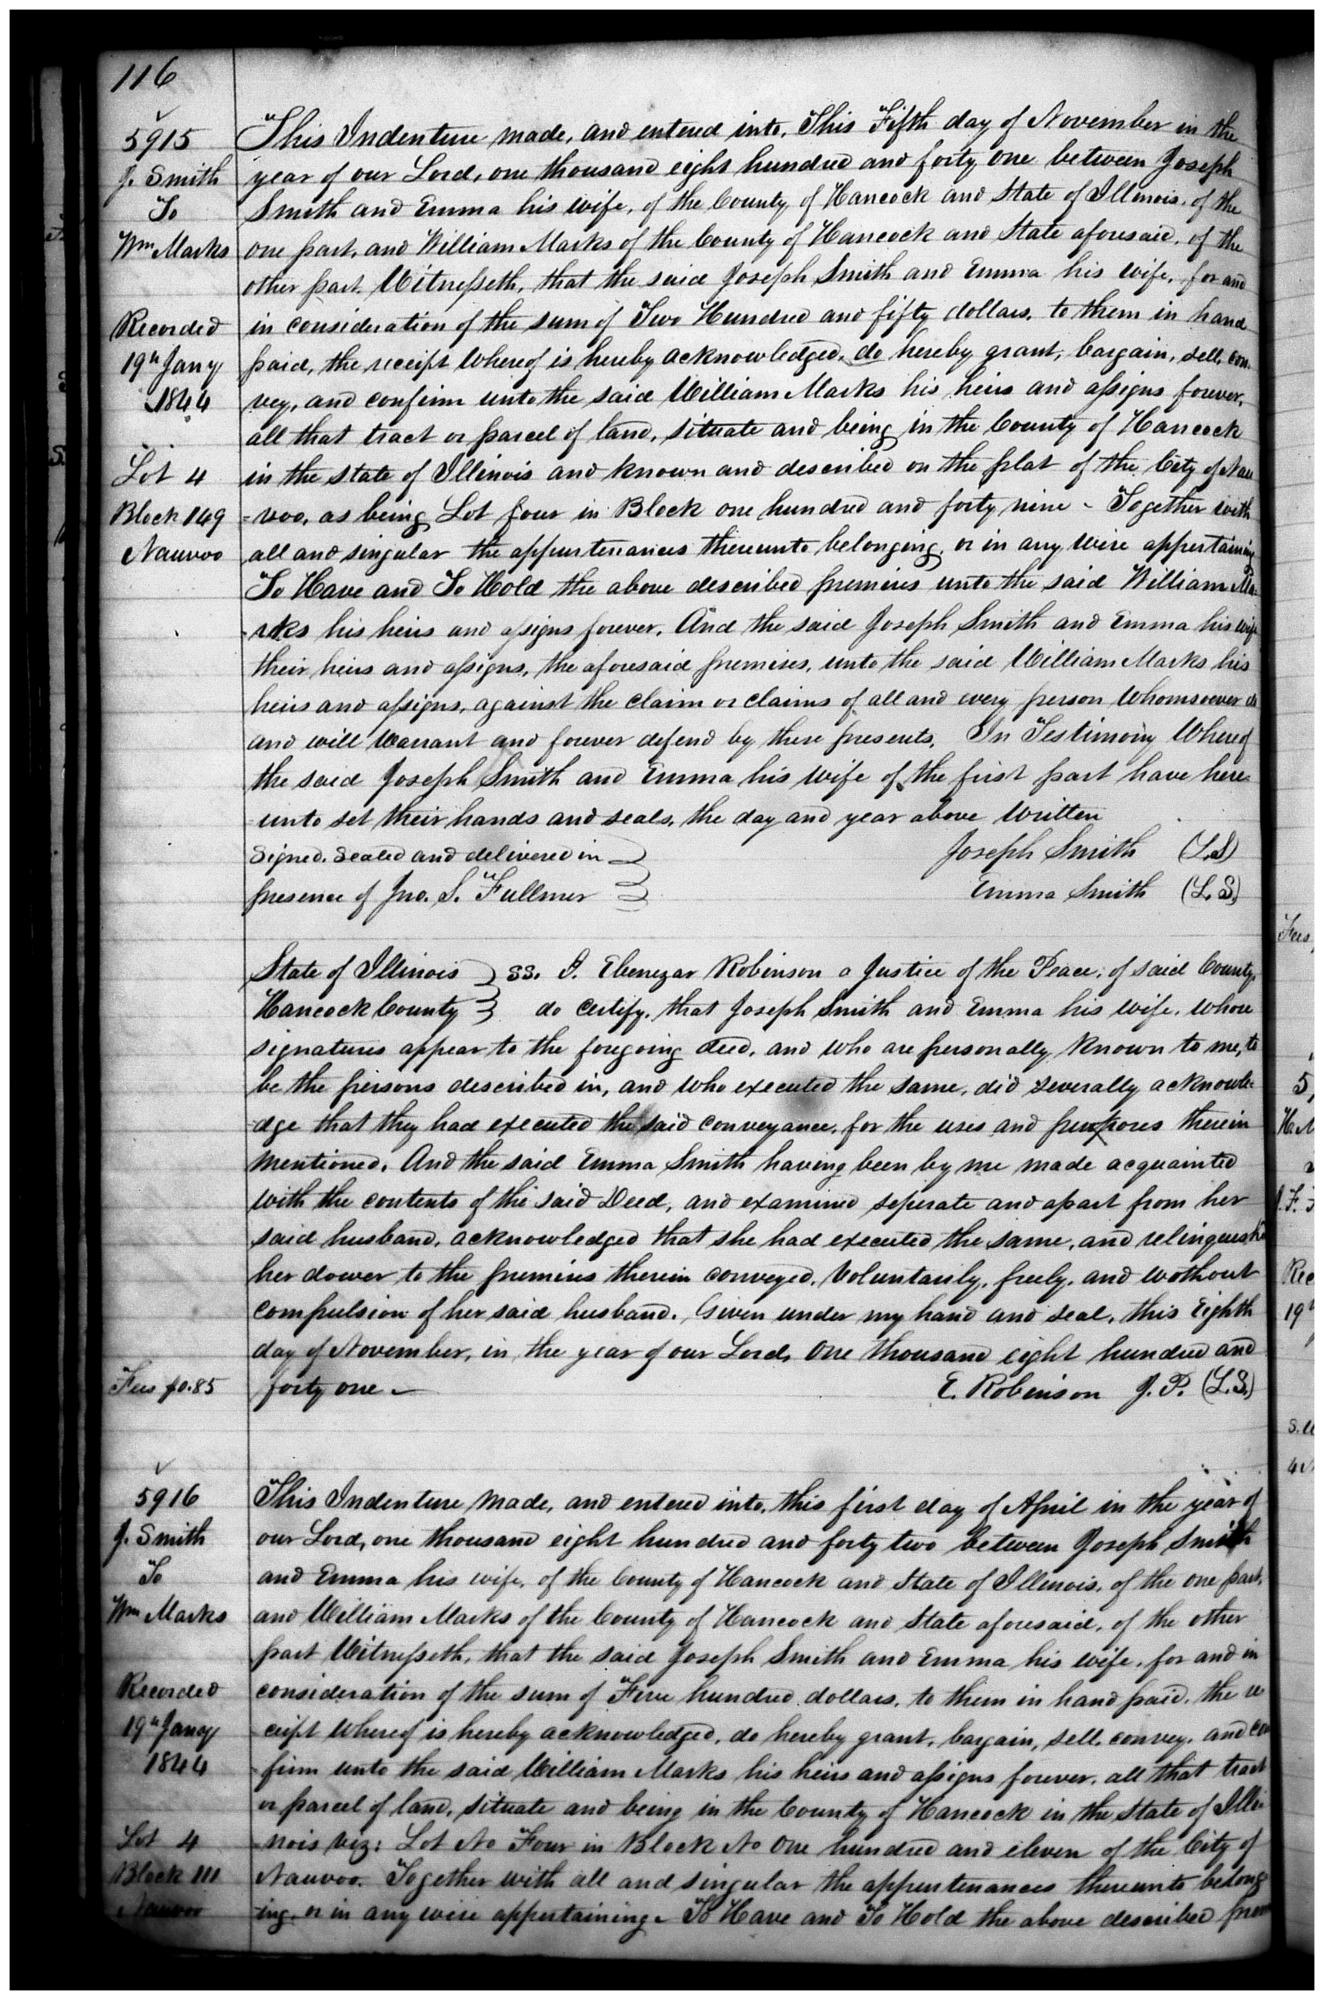 116
5915
J. Smith
To
Wm Marks
Recorded
19th Jany
1844
Lot 4
Block 149
Nauvoo
This Indenture made, and entered into, This Fifth day of November in the
year of our Lord, one thousand eight hundred and forty one between Joseph
Smith and Emma his wife, of the County of Hancock and State of Illinois, of the
one part, and William Marks of the County of Hancock and State aforesaid, of the
other part. Witnesseth, that the said Joseph Smith and Emma his wife, for and
in consideration of the sum of Two Hundred and fifty dollars, to them in hand
paid, the receipt whereof is hereby acknowledged, do hereby grant, bargain, sell, con-
vey, and confirm unto the said William Marks his heirs and assigns forever,
all that tract or parcel of land, situate and being in the County of Hancock
in the state of Illinois and known and described on the plat of the City of Nau
=voo, as being Lot four in Block one hundred and forty nine - Together with
all and singular the appurtenances thereunto belonging, or in any wise appertaining
To Have and To Hold the above described premises unto the said William Ma-
-rks his heirs and assigns forever. And the said Joseph Smith and Emma his wife
their heirs and assigns, the aforesaid premises, unto the said William Marks his
heirs and assigns, against the claim or claims of all and every person whomsoever do
and will warrant and forever defend by these presents. In Testimony Whereof
the said Joseph Smith and Emma his wife of the first part have here-
-unto set their hands and seals, the day and year above written
Signed, Sealed and delivered in } Joseph Smith (L.S)
presence of Jno. S. Fullmer } Emma Smith (L.S.)
State of Illinois } ss. I. Ebenezar Robinson a Justice of the Peace, of said County,
Hancock County } do certify, that Joseph Smith and Emma his wife, whose
signatures appear to the foregoing deed, and who are personally known to me, to
be the persons described in, and who executed the same, did severally acknowle-
-dge that they had executed the said conveyance, for the uses and purposes therein
mentioned. And the said Emma Smith having been by me made acquainted
with the contents of the said Deed, and examined seperate and apart from her
said husband, acknowledged that she had executed the same, and relinquishd
her dower to the premises therein conveyed, voluntarily, freely, and without
compulsion of her said husband. Given under my hand and seal, this Eighth
day of November, in the year of our Lord, one thousand eight hundred and
forty one - E. Robinson J. P. (L.S.)
Fees $0.85
5916
J. Smith
To
Wm Marks
Recorded
19th Jany
1844
Lot 4
Block 111
Nauvoo
This Indenture made, and entered into, this first day of April in the year of
our Lord, one thousand eight hundred and forty two between Joseph Smith
and Emma his wife, of the County of Hancock and State of Illinois, of the one part,
and William Marks of the County of Hancock and State aforesaid, of the other
part Witnesseth, that the said Joseph Smith and Emma his wife, for and in
consideration of the sum of Five hundred dollars, to them in hand paid, the re
-ceipt whereof is hereby acknowledged, do hereby grant, bargain, sell, convey, and con
-firm unto the said William Marks his heirs and assigns forever, all that tract
or parcel of land, situate and being in the County of Hancock in the State of Illi-
nois viz: Lot No Four in Block No One hundred and eleven of the City of
Nauvoo. Together with all and singular the appurtenances thereunto belong
-ing, or in any wise appertaining. To Have and To Hold the above described prem